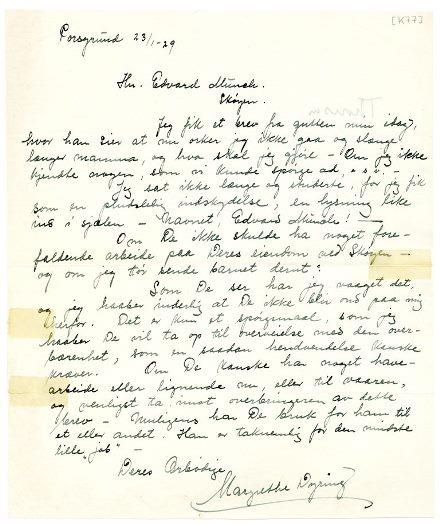 [K773]
Porsgrund 23/1-29
Hr. Edvard Munch.
Skøyen.
Jeg fik et brev fra gutten min idag,
hvor han sier at nu orker jeg ikke gaa og slænge
længer mamma, og hva skal jeg gjøre – Om jeg ikke
kjendte nogen, som vi kunde spørge ad, o.s.v. –
Jeg sat ikke længe og studerte, for jeg fik
som en pludselig indskydelse, en lysning like
ind i sjælen – Navnet, Edvard Munch! –
Om De ikke skulde ha noget fore-
faldende arbeide paa Deres eiendom ved Skøyen –
og om jeg tør sende barnet dernt?
Som De ser har jeg vaaget det,
og jeg haaber inderlig at De ikke blir ond paa mig
herfor. Det er kun et spørgsmaal, som jeg
haaber De vil ta op til overveielse med den over-
bærenhet, som en saadan henvendelse kanske
kræver. Om De kanske har noget have-
arbeide eller lignende nu, eller til vaaren,
og venligst ta mot overbringeren av dette
brev – Muligens har De bruk for ham til
et eller andet. Han er taknemlig for den mindste
lille "job" –
Deres Ærbødige
Margrethe Dyring